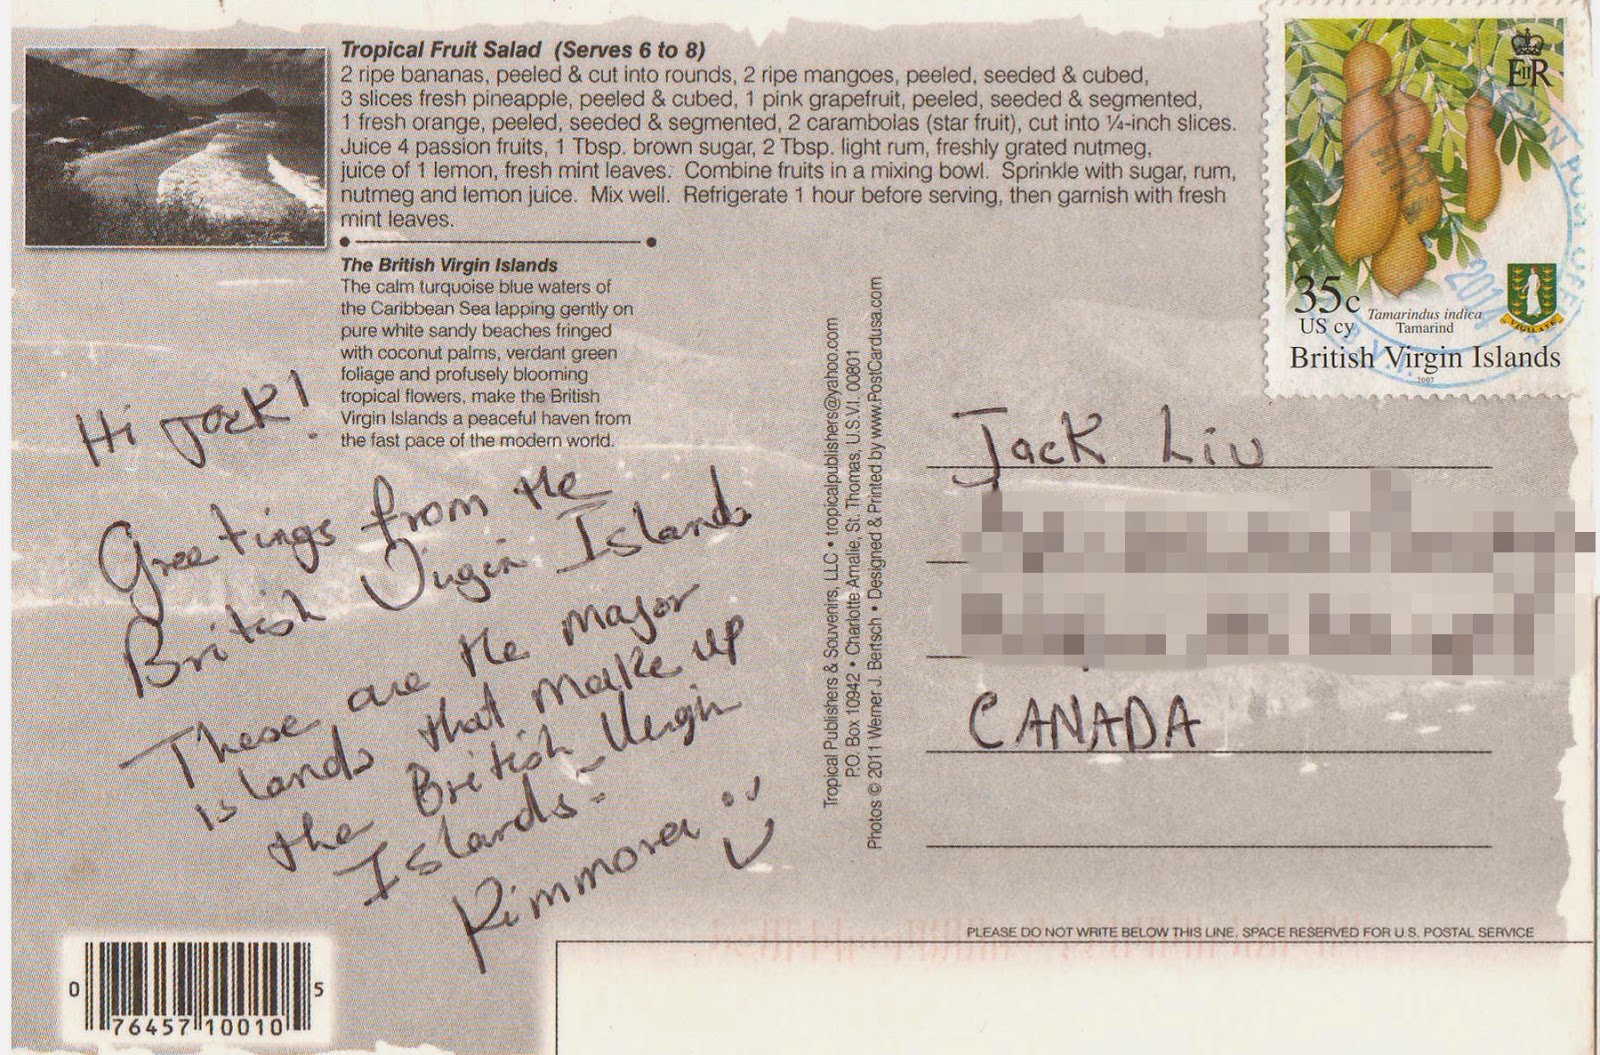 Tropical Fruit Salad (Serves 6 to 8)
2 ripe bananas, peeled & cut into rounds, 2 ripe mangoes, peeled, seeded & cubed,
3 slices fresh pineapple, peeled & cubed, 1 pink grapefruit, peeled, seeded & segmented,
1 fresh orange, peeled, seeded & segmented, 2 carambolas (star fruit), cut into ¼-inch slices.
Juice 4 passion fruits, 1 Tbsp. brown sugar, 2 Tbsp. light rum, freshly grated nutmeg,
juice of 1 lemon, fresh mint leaves. Combine fruits in a mixing bowl. Sprinkle with sugar, rum,
nutmeg and lemon juice. Mix well. Refrigerate 1 hour before serving, then garnish with fresh
mint leaves.
The British Virgin Islands
The calm turquoise blue waters of
the Caribbean Sea lapping gently on
pure white sandy beaches fringed
with coconut palms, verdant green
foliage and profusely blooming
tropical flowers, make the British
Virgin Islands a peaceful haven from
the fast pace of the modern world.
Hi Jack!
Greetings from the
British Virgin Islands
These are the major
islands that make up
the British Virgin
Islands.
Rimmorea
0 76457 10010 5
Tropical Publishers & Souvenirs, LLC • tropicalpublishers@yahoo.com
P.O. Box 10942 • Charlotte Amalie, St. Thomas, U.S.V.I. 00801
Photos © 2011 Werner J. Bertsch • Designed & Printed by www.PostCardusa.com
EIIR
35c
US cy
Tamarindus indica
Tamarind
VIGILATE
British Virgin Islands
2007
2014
Jack Liu
CANADA
PLEASE DO NOT WRITE BELOW THIS LINE, SPACE RESERVED FOR U.S. POSTAL SERVICE